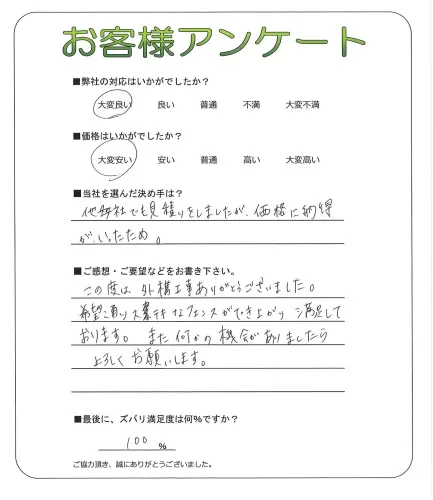 お客様アンケート
■弊社の対応はいかがでしたか?
大変良い 良い 普通 不満 大変不満
■価格はいかがでしたか?
大変安い 安い 普通 高い 大変高い
■当社を選んだ決め手は?
他数社でも見積りをしましたが、価格に納得
が、いったため。
■ご感想・ご要望などをお書き下さい。
この度は 外構工事ありがとうございました。
希望通り 大変素敵なフェンスができ上がり 満足して
おります。 また何かの機会がありましたら
よろしくお願いします。
■最後に、ズバリ満足度は何%ですか?
100 %
ご協力頂き、誠にありがとうございました。